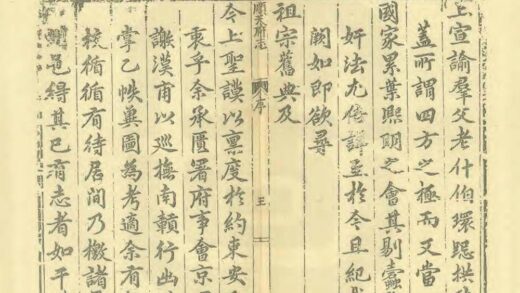 上宣諭羣父老什伯環跽拱
蓋所謂四方之極而又當
國家累葉熙明之會其剔蠹
奸法尤於今且紀
闕如即欲尋
祖宗舊典及
順天府志
序
今上聖謨以禀度於約束安
乎余承匱署府事會京
謝漢甫以巡撫南贑行出
掌乙帙圖為考適余有
核循循有待居間乃檄諸
邑得其已有志者如干